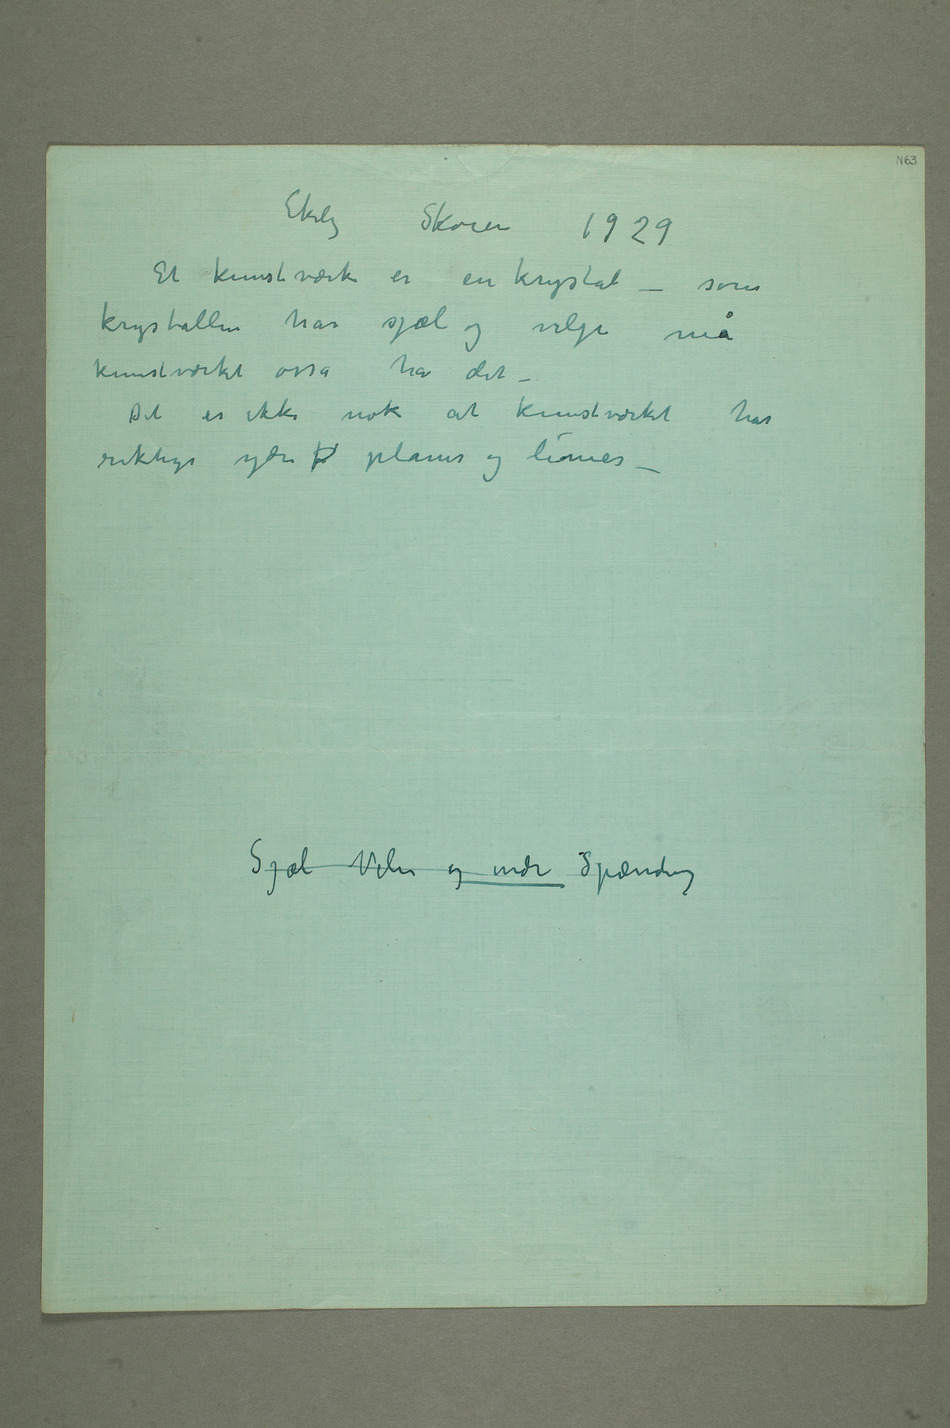 N63
Ekely Skøien 1929
Et kunstværk er en krystal – som
krystallen har sjæl og vilje må
kunstværket også ha det –
Det er ikke nok at kunstværket har
riktige ydre planer og linier –
Sjæl Vilie og indre Spænding